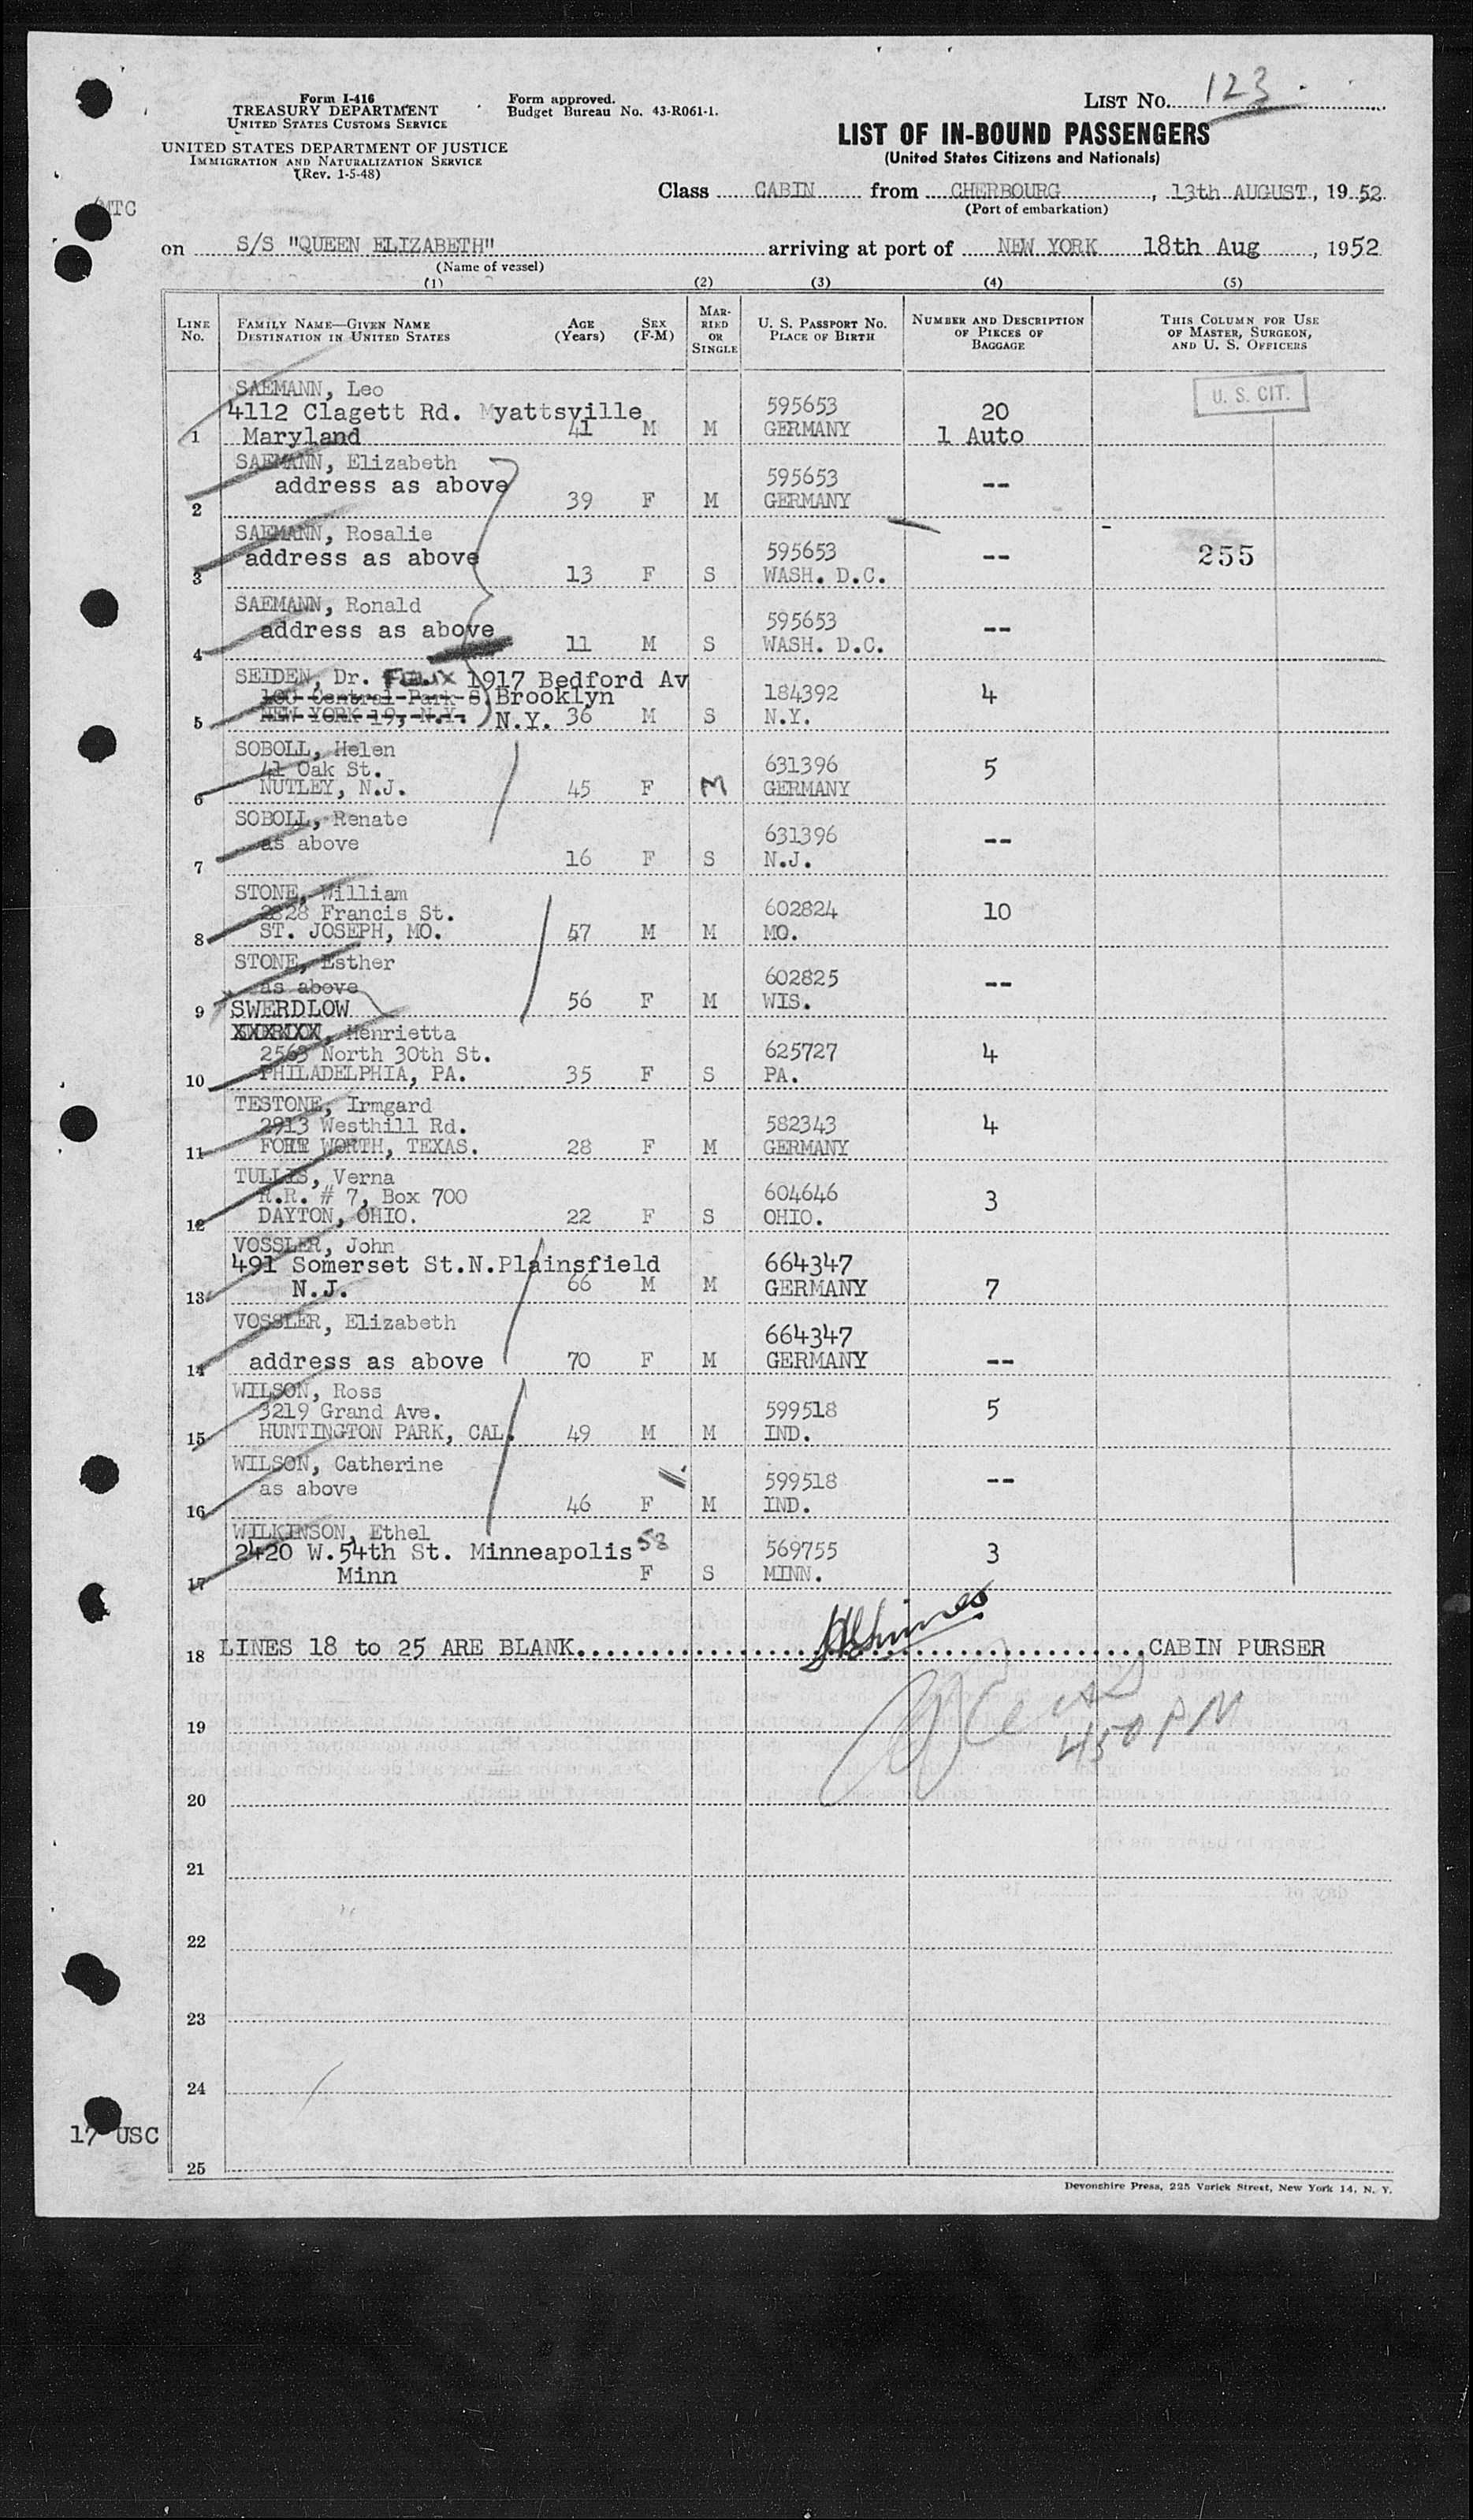 Form I-416
TREASURY DEPARTMENT
UNITED STATES CUSTOMS SERVICE
UNITED STATES DEPARTMENT OF JUSTICE
IMMIGRATION AND NATURALIZATION SERVICE
(Rev. 1-5-48)
Form approved.
Budget Bureau No. 43-R061-1.
LIST NO. 123
LIST OF IN-BOUND PASSENGERS
(United States Citizens and Nationals)
Class CABIN from CHERBOURG, 13th AUGUST, 1952
(Port of embarkation)
MTC
on S/S "QUEEN ELIZABETH" arriving at port of NEW YORK 18th Aug, 1952
(Name of vessel)
(1) (2) (3) (4) (5)
LINE NO.
FAMILY NAME—GIVEN NAME
DESTINATION IN UNITED STATES
AGE (Years)
SEX (F-M)
MARRIED OR SINGLE
U. S. PASSPORT NO.
PLACE OF BIRTH
NUMBER AND DESCRIPTION OF PIECES OF BAGGAGE
THIS COLUMN FOR USE OF MASTER, SURGEON, AND U. S. OFFICERS
SAEMANN, Leo
4112 Clagett Rd. Myattsville 595653 20 U. S. CIT.
1 Maryland 41 M M GERMANY 1 Auto
SAEMANN, Elizabeth
address as above 595653 --
2 39 F M GERMANY
SAEMANN, Rosalie
address as above 595653 -- 255
3 13 F S WASH. D.C.
SAEMANN, Ronald
address as above 595653 --
4 11 M S WASH. D.C.
SEIDEN, Dr. 1917 Bedford Av
100 Central Park S Brooklyn 184392 4
5 NEW YORK 19, N.Y. N.Y. 36 M S N.Y.
SOBOLL, Helen
41 Oak St. 631396 5
6 NUTLEY, N.J. 45 F M GERMANY
SOBOLL, Renate
as above 631396 --
7 16 F S N.J.
STONE, William
2828 Francis St. 602824 10
8 ST. JOSEPH, MO. 57 M M MO.
STONE, Esther
as above 602825 --
9 56 F M WIS.
SWERDLOW
XXXXXXX, Henrietta
2563 North 30th St. 625727 4
10 PHILADELPHIA, PA. 35 F S PA.
TESTONE, Irmgard
2913 Westhill Rd. 582343 4
11 FORT WORTH, TEXAS. 28 F M GERMANY
TULLIS, Verna
R.R. # 7, Box 700 604646 3
12 DAYTON, OHIO. 22 F S OHIO.
VOSSLER, John
491 Somerset St.N.Plainsfield 664347
13 N.J. 66 M M GERMANY 7
VOSSLER, Elizabeth
664347
14 address as above 70 F M GERMANY --
WILSON, Ross
3219 Grand Ave. 599518 5
15 HUNTINGTON PARK, CAL. 49 M M IND.
WILSON, Catherine
as above 599518 --
16 46 F M IND.
WILKINSON, Ethel
2420 W.54th St. Minneapolis 58 569755 3
17 Minn F S MINN.
18 LINES 18 to 25 ARE BLANK CABIN PURSER
19 450 PM
20
21
22
23
24
17 USC
25
Devonshire Press, 225 Varick Street, New York 14, N. Y.